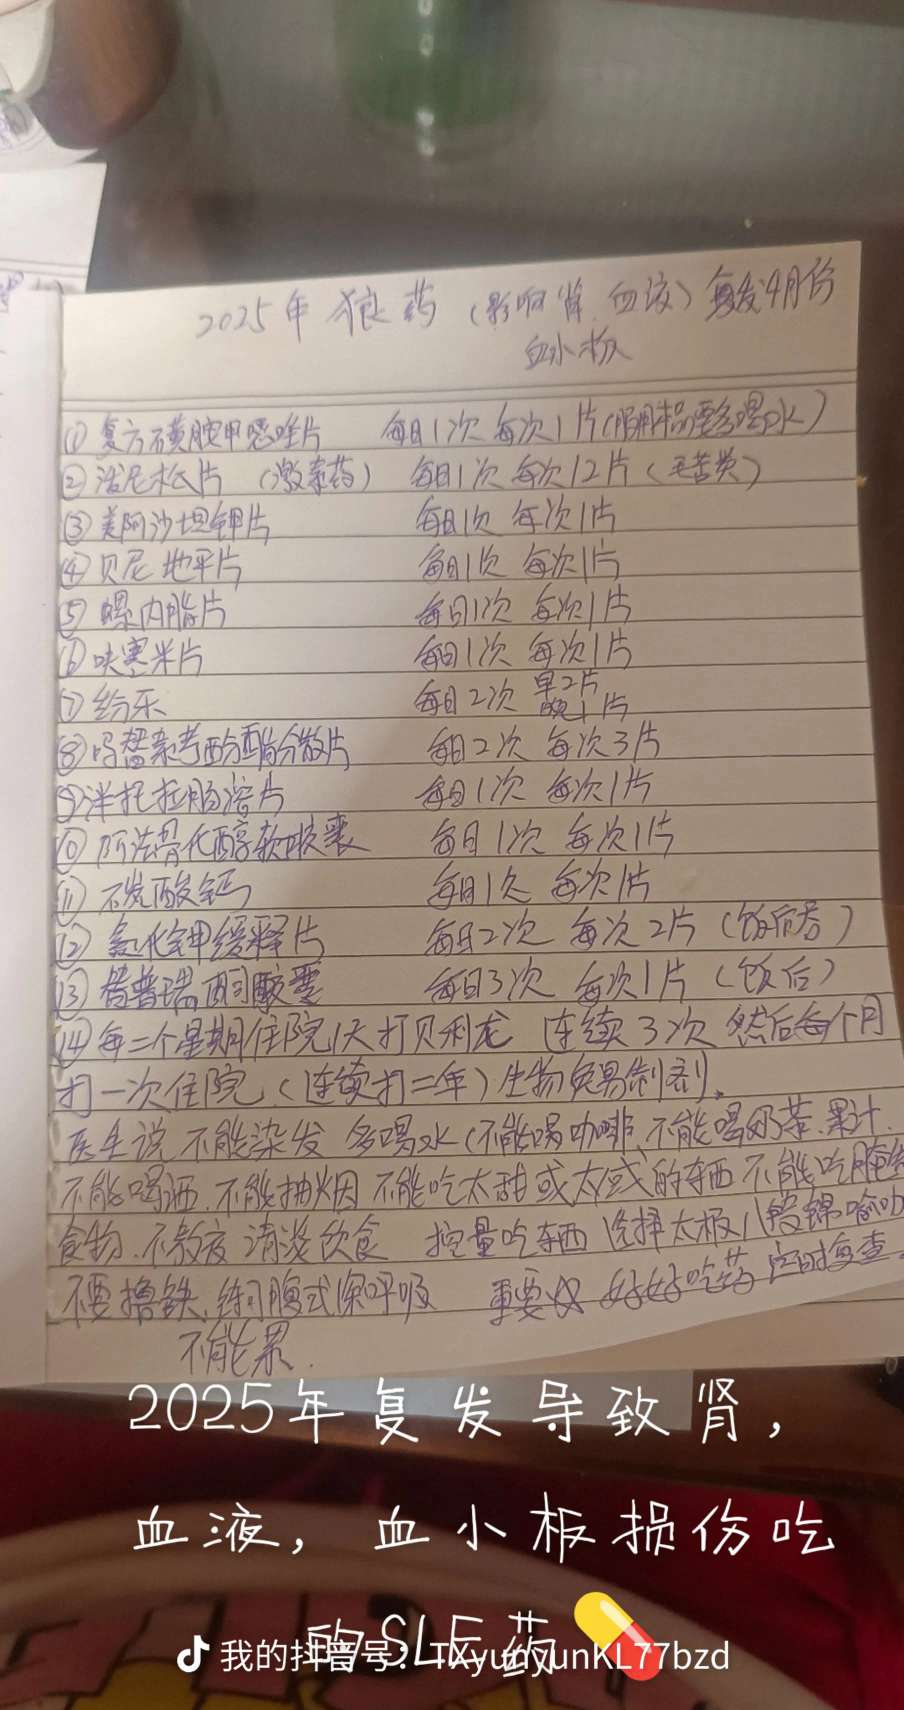 2025年 狼药 (影响肾.血液) 复发4月份
血小板
① 复方磺胺甲噁唑片 每日1次 每次1片(服用本品要多喝水)
② 泼尼松片 (激素药) 每日1次 每次12片 (无苦类)
③ 美阿沙坦钾片 每日1次 每次1片
④ 贝尼地平片 每日1次 每次1片
⑤ 螺内脂片 每日1次 每次1片
⑥ 呋塞米片 每日1次 每次1片
⑦ 纷乐 每日2次 早2片
晚1片
⑧ 吗替麦考酚酯分散片 每日2次 每次3片
⑨ 泮托拉肠溶片 每日1次 每次1片
⑩ 阿法骨化醇软胶囊 每日1次 每次1片
⑪ 碳酸钙 每日1次 每次1片
⑫ 氯化钾缓释片 每日2次 每次2片 (饭后吞)
⑬ 替普瑞酮胶囊 每日3次 每次1片 (饭后)
⑭ 每二个星期住院1天打贝利龙 连续3次 然后每个月
打一次住院 (连续打二年) 生物免易制剂.
医生说 不能染发 多喝水 (不能喝咖啡.不能喝奶茶.果汁.
不能喝酒.不能抽烟 不能吃太甜或太咸的东西 不能吃腌
食物.不熬夜 清淡饮食 控量吃东西 选择太极八段锦瑜伽
不要撸铁.练习腹式深呼吸 重要 好好吃药 定时复查.
不能累.
2025年复发导致肾,
血液,血小板损伤吃
的SLE药💊
我的抖音号: TXyunyunKL77bzd